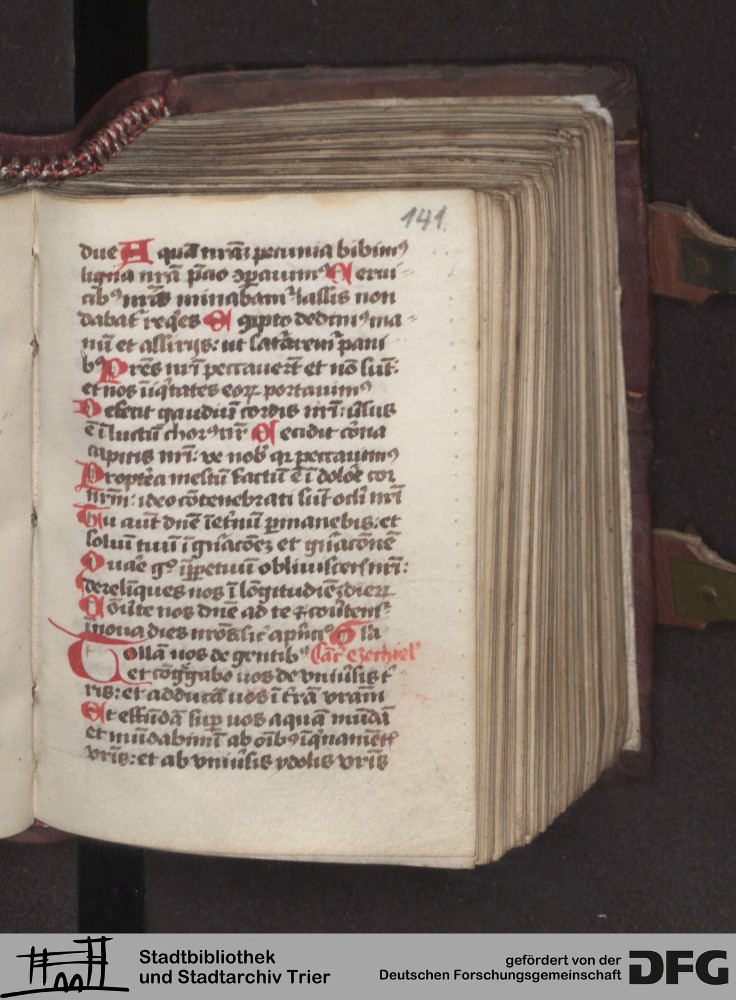 141.
due A quā nr̄aȝ pecunia bibimꝰ
ligna nr̄a p̄cio ꝯparauimꝰ C erui-
cibꝰ nr̄is minabamͬ lassis non
dabat᷑ req̇es E gipto dedimꝰ ma-
nū et assirijs: ut saturarem᷑ pani
bꝰ P res nr̄i peccauer̄t et nō sūt:
et nos iniq̇tates eoꝝ portauimꝰ
D efecit gaudiū cordis nr̄i: v̄sus
ē ī luctū chorꝰ nr̄ C ecidit corōa
capitis nr̄i: ve nob̄ qꝛ peccauimꝰ
P ropt̄ea mestū factū ē ī dolōe cor
nr̄m: ideo cōtenebrati sūt oclī nr̄i
T u aut̄ dn̄e ī et̄nū ꝑmanebis: et
soliū tuū ī gn̄acōeȝ et gn̄acōnē
Q uare gͦ ī ꝑpetuū obliuisceris nr̄i:
derelīques nos ī lōgitudīeȝ dieꝝ
C ōu̇te nos dn̄e ad te ⁊ cōu̇tem᷑:
īnoua dies nr̄os sic̄ a p̄ncipͦ G l̄a
T ollā uos de gentibꝰ Cāt̄ ezechielͥ
et cōg̊gabo uos de vniu̇sis t̄
ris: et adducā uos ī t̄rā vr̄am
E t effūdā suꝑ uos aquā mūdā
et mūdabimī ab oībꝰ īq̇namētͥ
vr̄is: et ab vniu̇sis ydolis vr̄is
Stadtbibliothek
und Stadtarchiv Trier
gefördert von der
Deutschen Forschungsgemeinschaft
DFG